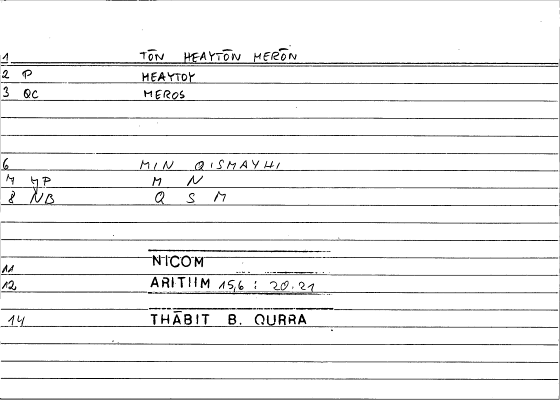 1 TŌN HEAYTŌN MERŌN
2 P HEAYTOY
3 QC MEROS
6 MIN QISMAYHI
7 YP M N
8 NB Q S M
11 NICOM
12 ARITIIM 15,6 : 20.21
14 THĀBIT B. QURRA